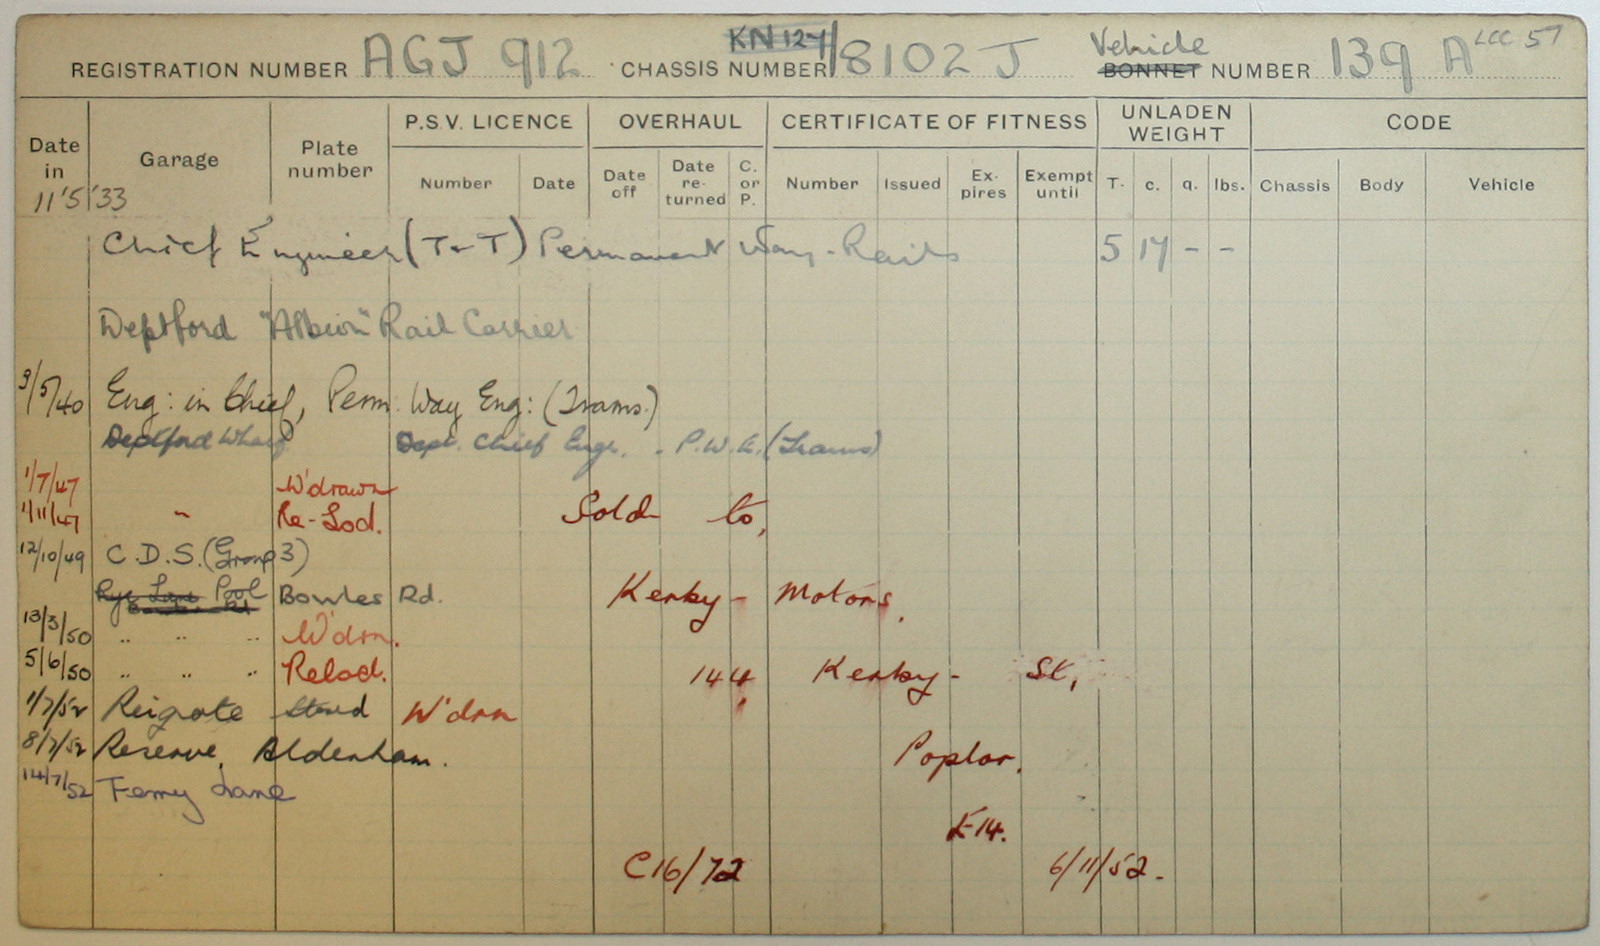 KN 127 Vehicle LCC 57
REGISTRATION NUMBER AGJ 912 CHASSIS NUMBER 8102 J BONNET NUMBER 139 A
P.S.V. LICENCE OVERHAUL CERTIFICATE OF FITNESS UNLADEN WEIGHT CODE
Date in Garage Plate number Number Date Date off Date re-turned C. or P. Number Issued Ex-pires Exempt until T. c. q. lbs. Chassis Body Vehicle
11'5'33
Chief Engineer (T & T) Permanent Way - Rails 5 17 - -
Deptford "Albion" Rail Carrier
3/5/40 Eng: in Chief, Perm. Way Eng: (Trams.)
Deptford Wharf Dept. Chief Engr. - P.W.E. (Trams)
1/7/47 W'drawn
1/11/47 " Re-Lod. Sold to,
12/10/49 C.D.S. (Group 3)
Rye Lane Pool Bowles Rd. Kerby - Motors,
13/3/50 " " " W'drn.
5/6/50 " " " Relod. 144 Kerby - St,
1/7/52 Reigate Stored W'drn
8/7/52 Reserve, Aldenham. Poplar.
14/7/52 Ferry Lane
E14.
C16/72 6/11/52.